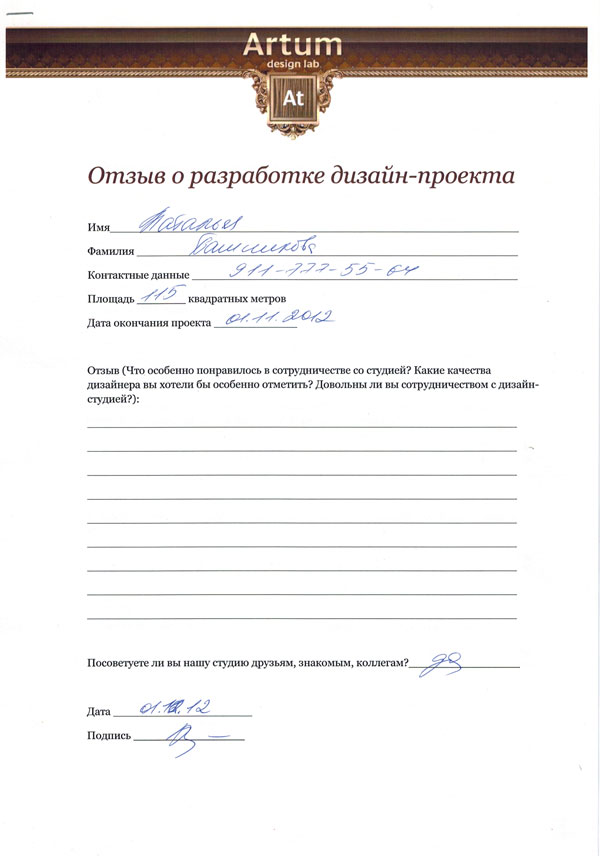 Artum
design lab
At
Отзыв о разработке дизайн-проекта
Имя Наталья
Фамилия
Контактные данные 911-777-55-64
Площадь 115 квадратных метров
Дата окончания проекта 01.11.2012
Отзыв (Что особенно понравилось в сотрудничестве со студией? Какие качества
дизайнера вы хотели бы особенно отметить? Довольны ли вы сотрудничеством с дизайн-
студией?):
Посоветуете ли вы нашу студию друзьям, знакомым, коллегам? да
Дата
Подпись